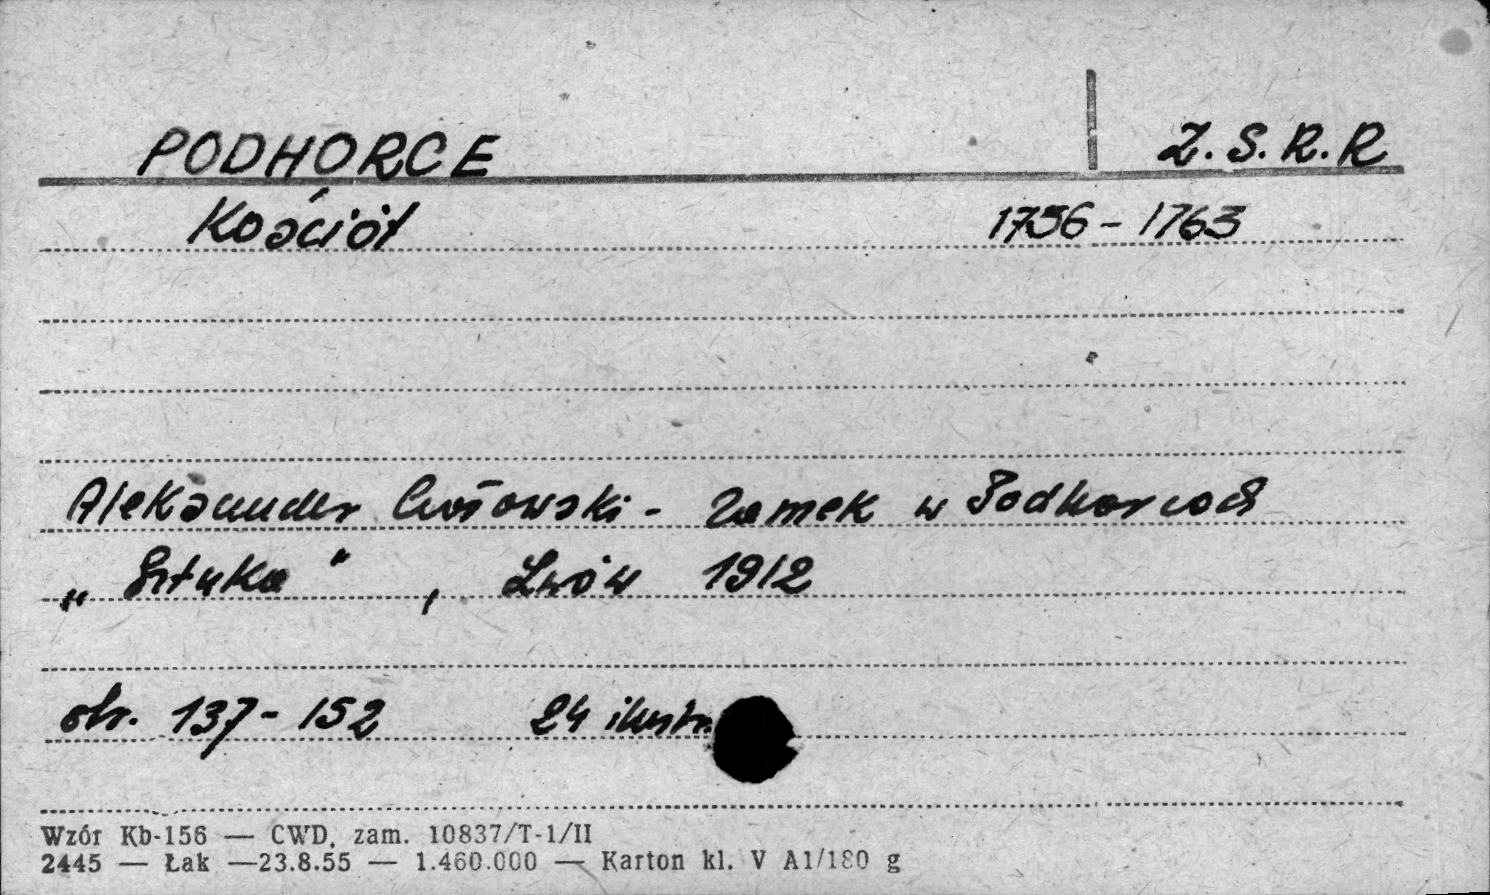 PODHORCE Z.S.R.R
Kościół 1756-1763
Aleksander Czołowski - Zamek w Podhorcach
„Sztuka", Lwów 1912
str. 137-152 24 ilustr.
Wzór Kb-156 — CWD, zam. 10837/T-1/II
2445 — Łak —23.8.55 — 1.460.000 — Karton kl. V A1/180 g